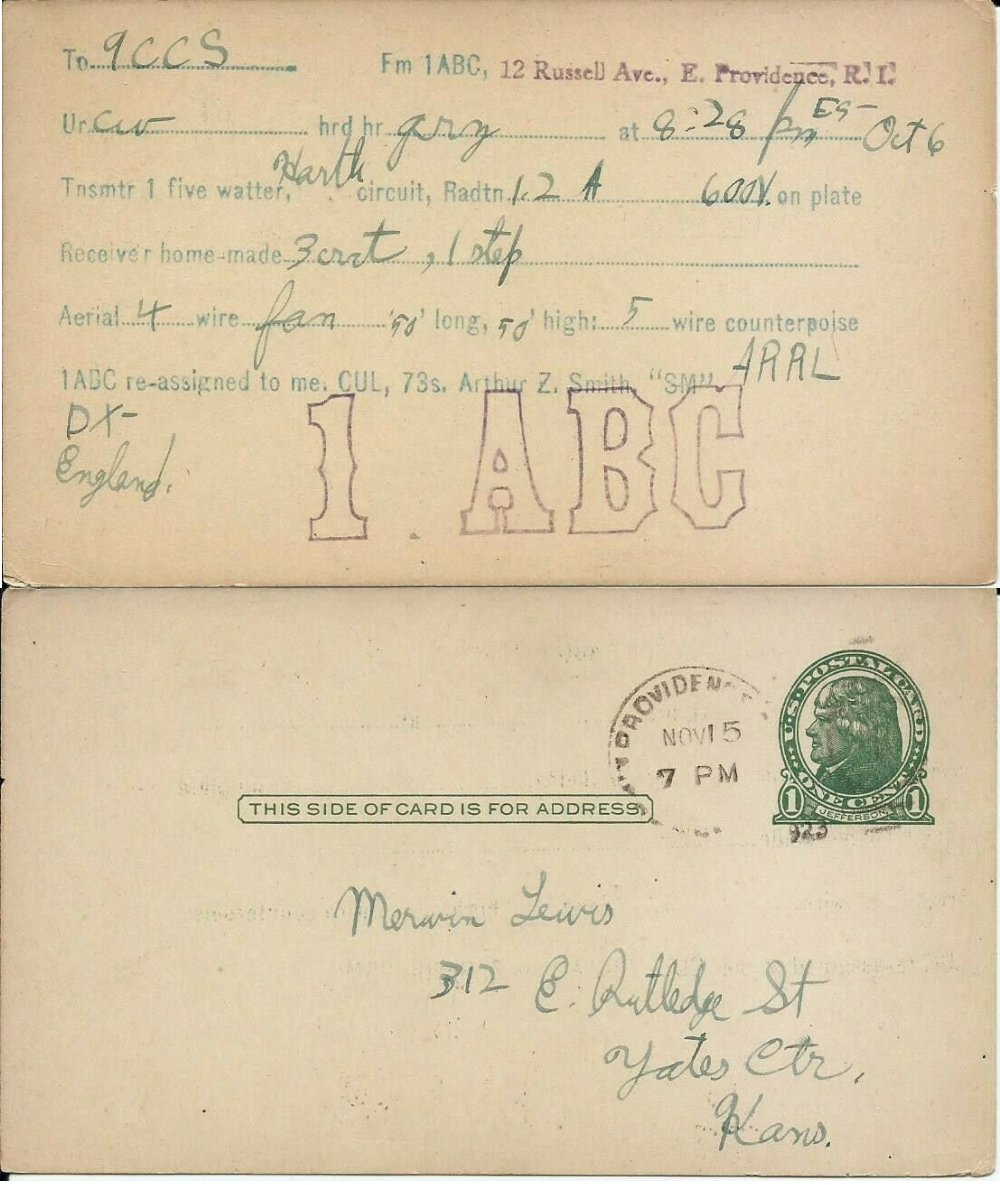 To 9CCS Fm 1ABC, 12 Russell Ave., E. Providence, R. I.
Ur cw hrd hr at 8:28 pm ES- Oct 6
Tnsmtr 1 five watter, Hartl circuit, Radtn 1.2 A 600V. on plate
Receiver home-made 3 crct, 1 step
Aerial 4 wire fan 50' long, 50' high: 5 wire counterpoise
1ABC re-assigned to me. CUL, 73s. Arthur Z. Smith, "SM" ARRL
DX-
England.
1 ABC
U.S. POSTAL CARD
PROVIDENCE
NOV 15
7 PM
1 ONE CENT 1
JEFFERSON
THIS SIDE OF CARD IS FOR ADDRESS
923
Merwin Lewis
312 E. Rutledge St
Yates Ctr,
Kans.